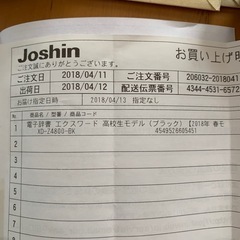 Joshin
お買い上げ明
ご注文誠にありがとうございます。
ご注文日 2018/04/11 ご注文番号 206032-2018041
出荷日 2018/04/12 配送伝票番号 4344-4531-6572
お届け指定日 2018/04/13 指定なし
No 商品名 / 型番 / 商品コード
1 電子辞書 エクスワード 高校生モデル（ブラック）【2018年 春モ
XD-Z4800-BK 4549526605451
2
3
4
5